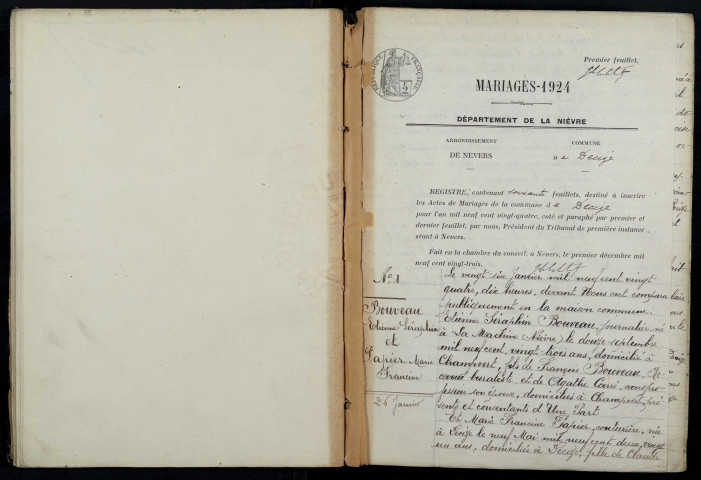 Premier feuillet.
RÉPUBLIQUE FRANÇAISE
MARIAGES-1924
DÉPARTEMENT DE LA NIÈVRE
ARRONDISSEMENT
DE NEVERS
COMMUNE
De Decize
REGISTRE, contenant soixante feuillets, destiné à inscrire
les Actes de Mariages de la commune de Decize
pour l'an mil neuf cent vingt-quatre, coté et paraphé par premier et
dernier feuillet, par nous, Président du Tribunal de première instance
séant à Nevers.
Fait en la chambre du conseil, à Nevers, le premier décembre mil
neuf cent vingt-trois.
No 1
Bouveau
Etienne Séraphin
et
Papier Marie
Francine
26 Janvier
Le vingt six janvier mil neuf cent vingt
quatre, dix heures, devant Nous ont comparu
publiquement en la maison commune.
Etienne Séraphin Bouveau, journalier, né
à La Machine (Nièvre) le douze septembre
mil neuf cent, vingt trois ans, domicilié à
Champvert, fils de François Bouveau, Re-
ceveur buraliste et de Agathe Carré, sans pro-
fession son épouse, domiciliés à Champvert, pré-
sents et consentants d'Une Part
Et Marie Francine Papier, couturière, née
à Decize le neuf Mai mil neuf cent deux, vingt
un ans, domiciliée à Decize, fille de Claude